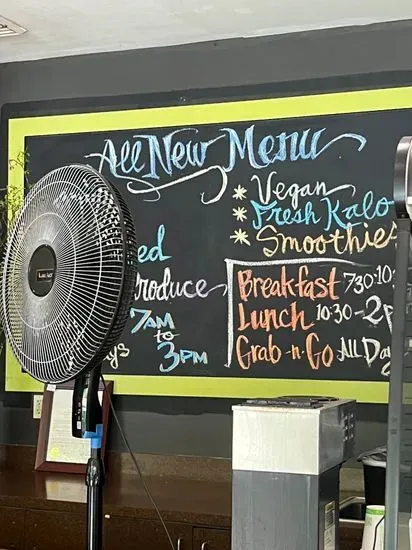 All New Menu
* Vegan
* Fresh Kalo
* Smoothies
ed
Produce
7AM
to
3PM
ys
Breakfast 730-10
Lunch 10:30-2P
Grab-n-Go All Day